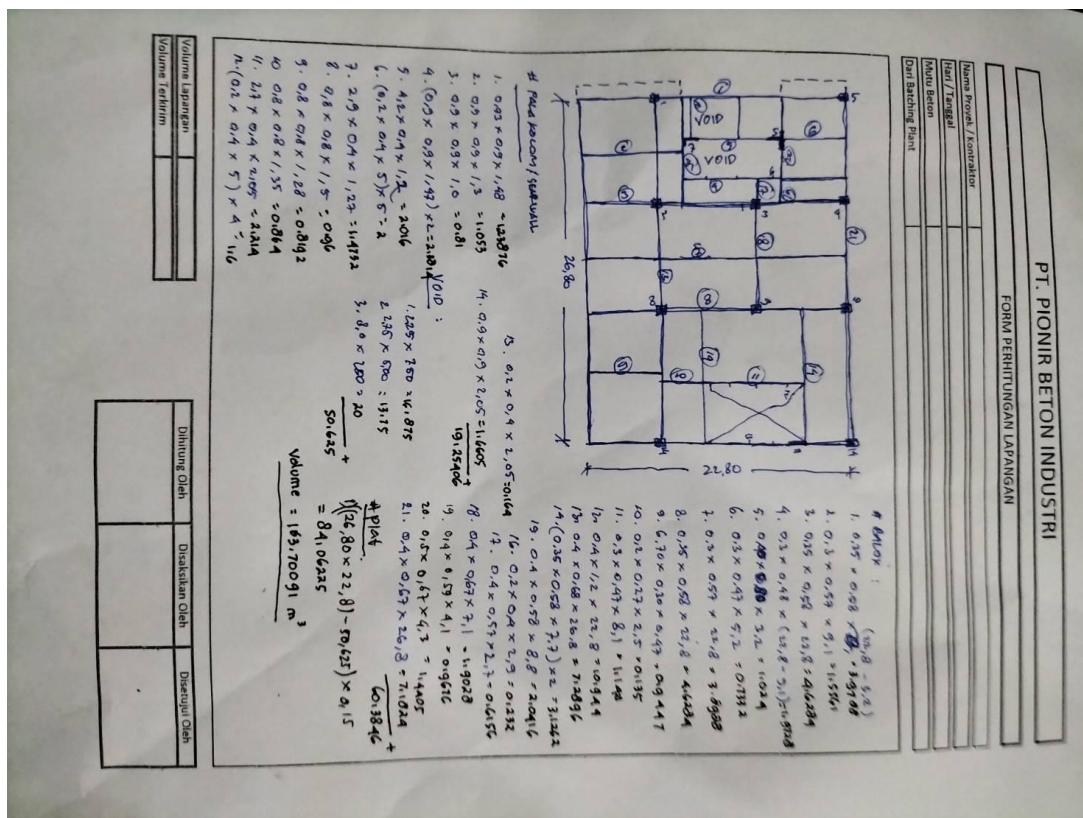 PT. PIONIR BETON INDUSTRI
FORM PERHITUNGAN LAPANGAN
Nama Proyek / Kontraktor
Hari / Tanggal
Mutu Beton
Dari Batching Plant
VOID
VOID
26,80
22,80
# BALOK :
(22,8 - 3,2)
1. 0,35 × 0,58 × = 3,9788
2. 0,3 × 0,57 × 9,1 = 1,5561
3. 0,35 × 0,58 × 22,8 = 4,6284
4. 0,3 × 0,48 × (22,8 - 9,1) = 1,9728
5. 0,40 × 0,80 × 3,2 = 1,024
6. 0,3 × 0,47 × 5,2 = 0,7332
7. 0,3 × 0,57 × 22,8 = 3,8988
8. 0,35 × 0,58 × 22,8 = 4,6284
9. 6,70 × 0,30 × 0,47 = 0,9447
10. 0,2 × 0,27 × 2,5 = 0,135
11. 0,3 × 0,47 × 8,1 =
12. 0,4 × 1,2 × 22,8 = 10,944
13. 0,4 × 0,68 × 26,8 = 7,2896
14. (0,35 × 0,58 × 7,7) × 2 = 3,1262
15. 0,4 × 0,58 × 8,8 = 2,0416
16. 0,2 × 0,4 × 2,9 = 0,232
17. 0,4 × 0,57 × 2,7 = 0,6156
18. 0,4 × 0,67 × 7,1 = 1,9028
19. 0,4 × 0,59 × 4,1 = 0,9676
20. 0,5 × 0,67 × 4,3 = 1,4405
21. 0,4 × 0,67 × 26,8 = 7,1824
60,3846 +
# Plat.
((26,80 × 22,8) - 50,625) × 0,15
= 84,06225
Volume = 163,70091 m³
# PALA KOLOM / SEARWALL
1. 0,93 × 0,9 × 1,48 = 1,23876
2. 0,9 × 0,9 × 1,3 = 1,053
3. 0,9 × 0,9 × 1,0 = 0,81
4. (0,9 × 0,9 × 1,47) × 2 = 2,3814
5. 4,2 × 0,4 × 1,2 = 2,016
6. (0,2 × 0,4 × 5) × 5 = 2
7. 2,9 × 0,4 × 1,27 = 1,4732
8. 0,8 × 0,8 × 1,5 = 0,96
9. 0,8 × 0,8 × 1,28 = 0,8192
10. 0,8 × 0,8 × 1,35 = 0,864
11. 2,7 × 0,4 × 2,05 = 2,214
12. (0,2 × 0,4 × 5) × 4 = 1,6
13. 0,2 × 0,4 × 2,05 = 0,164
14. 0,9 × 0,9 × 2,05 = 1,6605
19,25406 +
VOID :
1. 2,25 × 7,50 = 16,875
2. 2,75 × 5,00 = 13,75
3. 8,0 × 2,50 = 20
50,625 +
Volume Lapangan
Volume Terkirim
Dihitung Oleh
Disaksikan Oleh
Disetujui Oleh